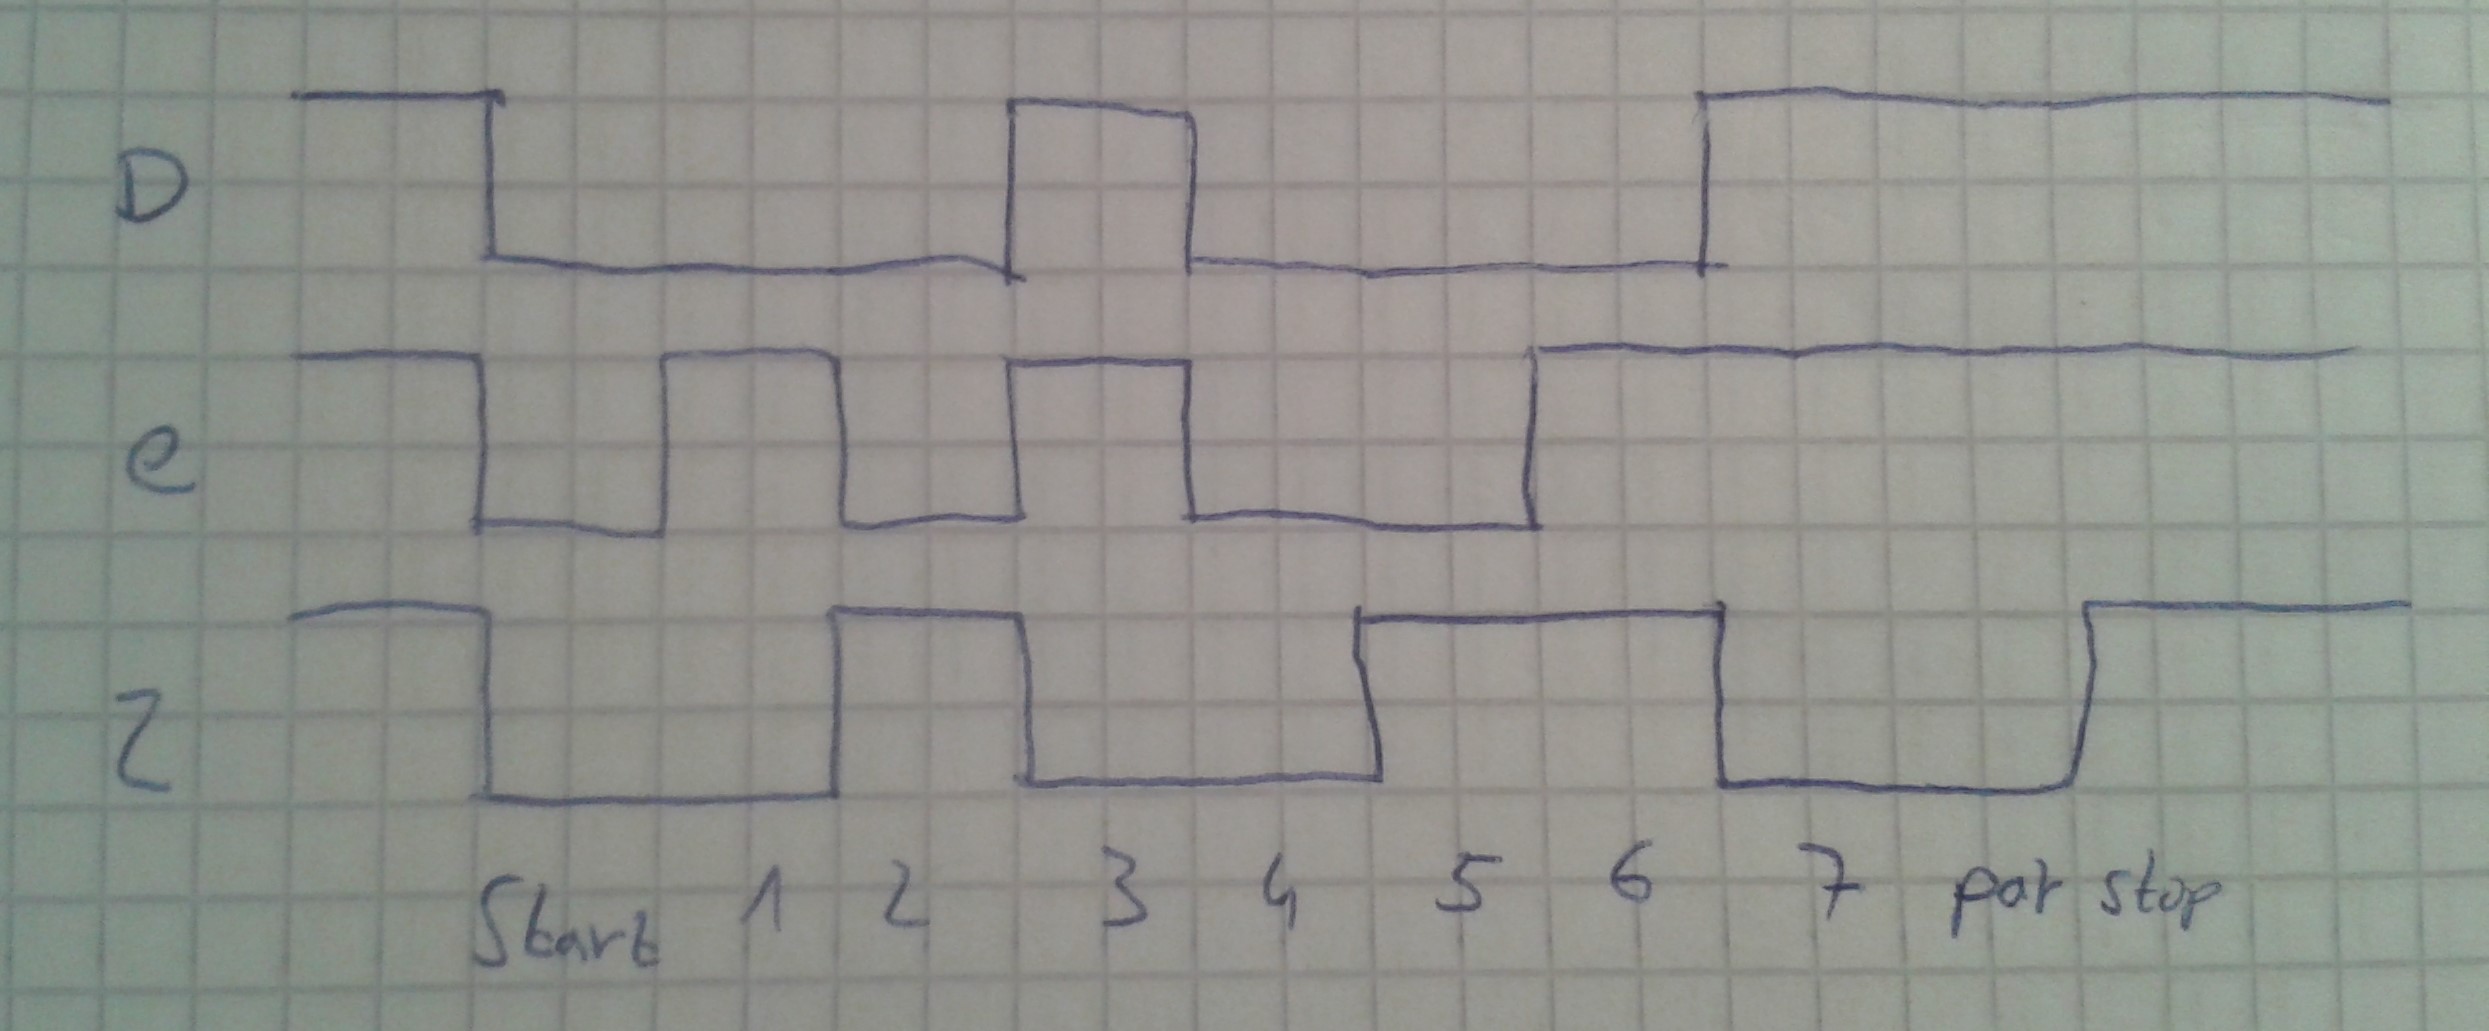 D
e
Z
Start 1 2 3 4 5 6 7 par stop